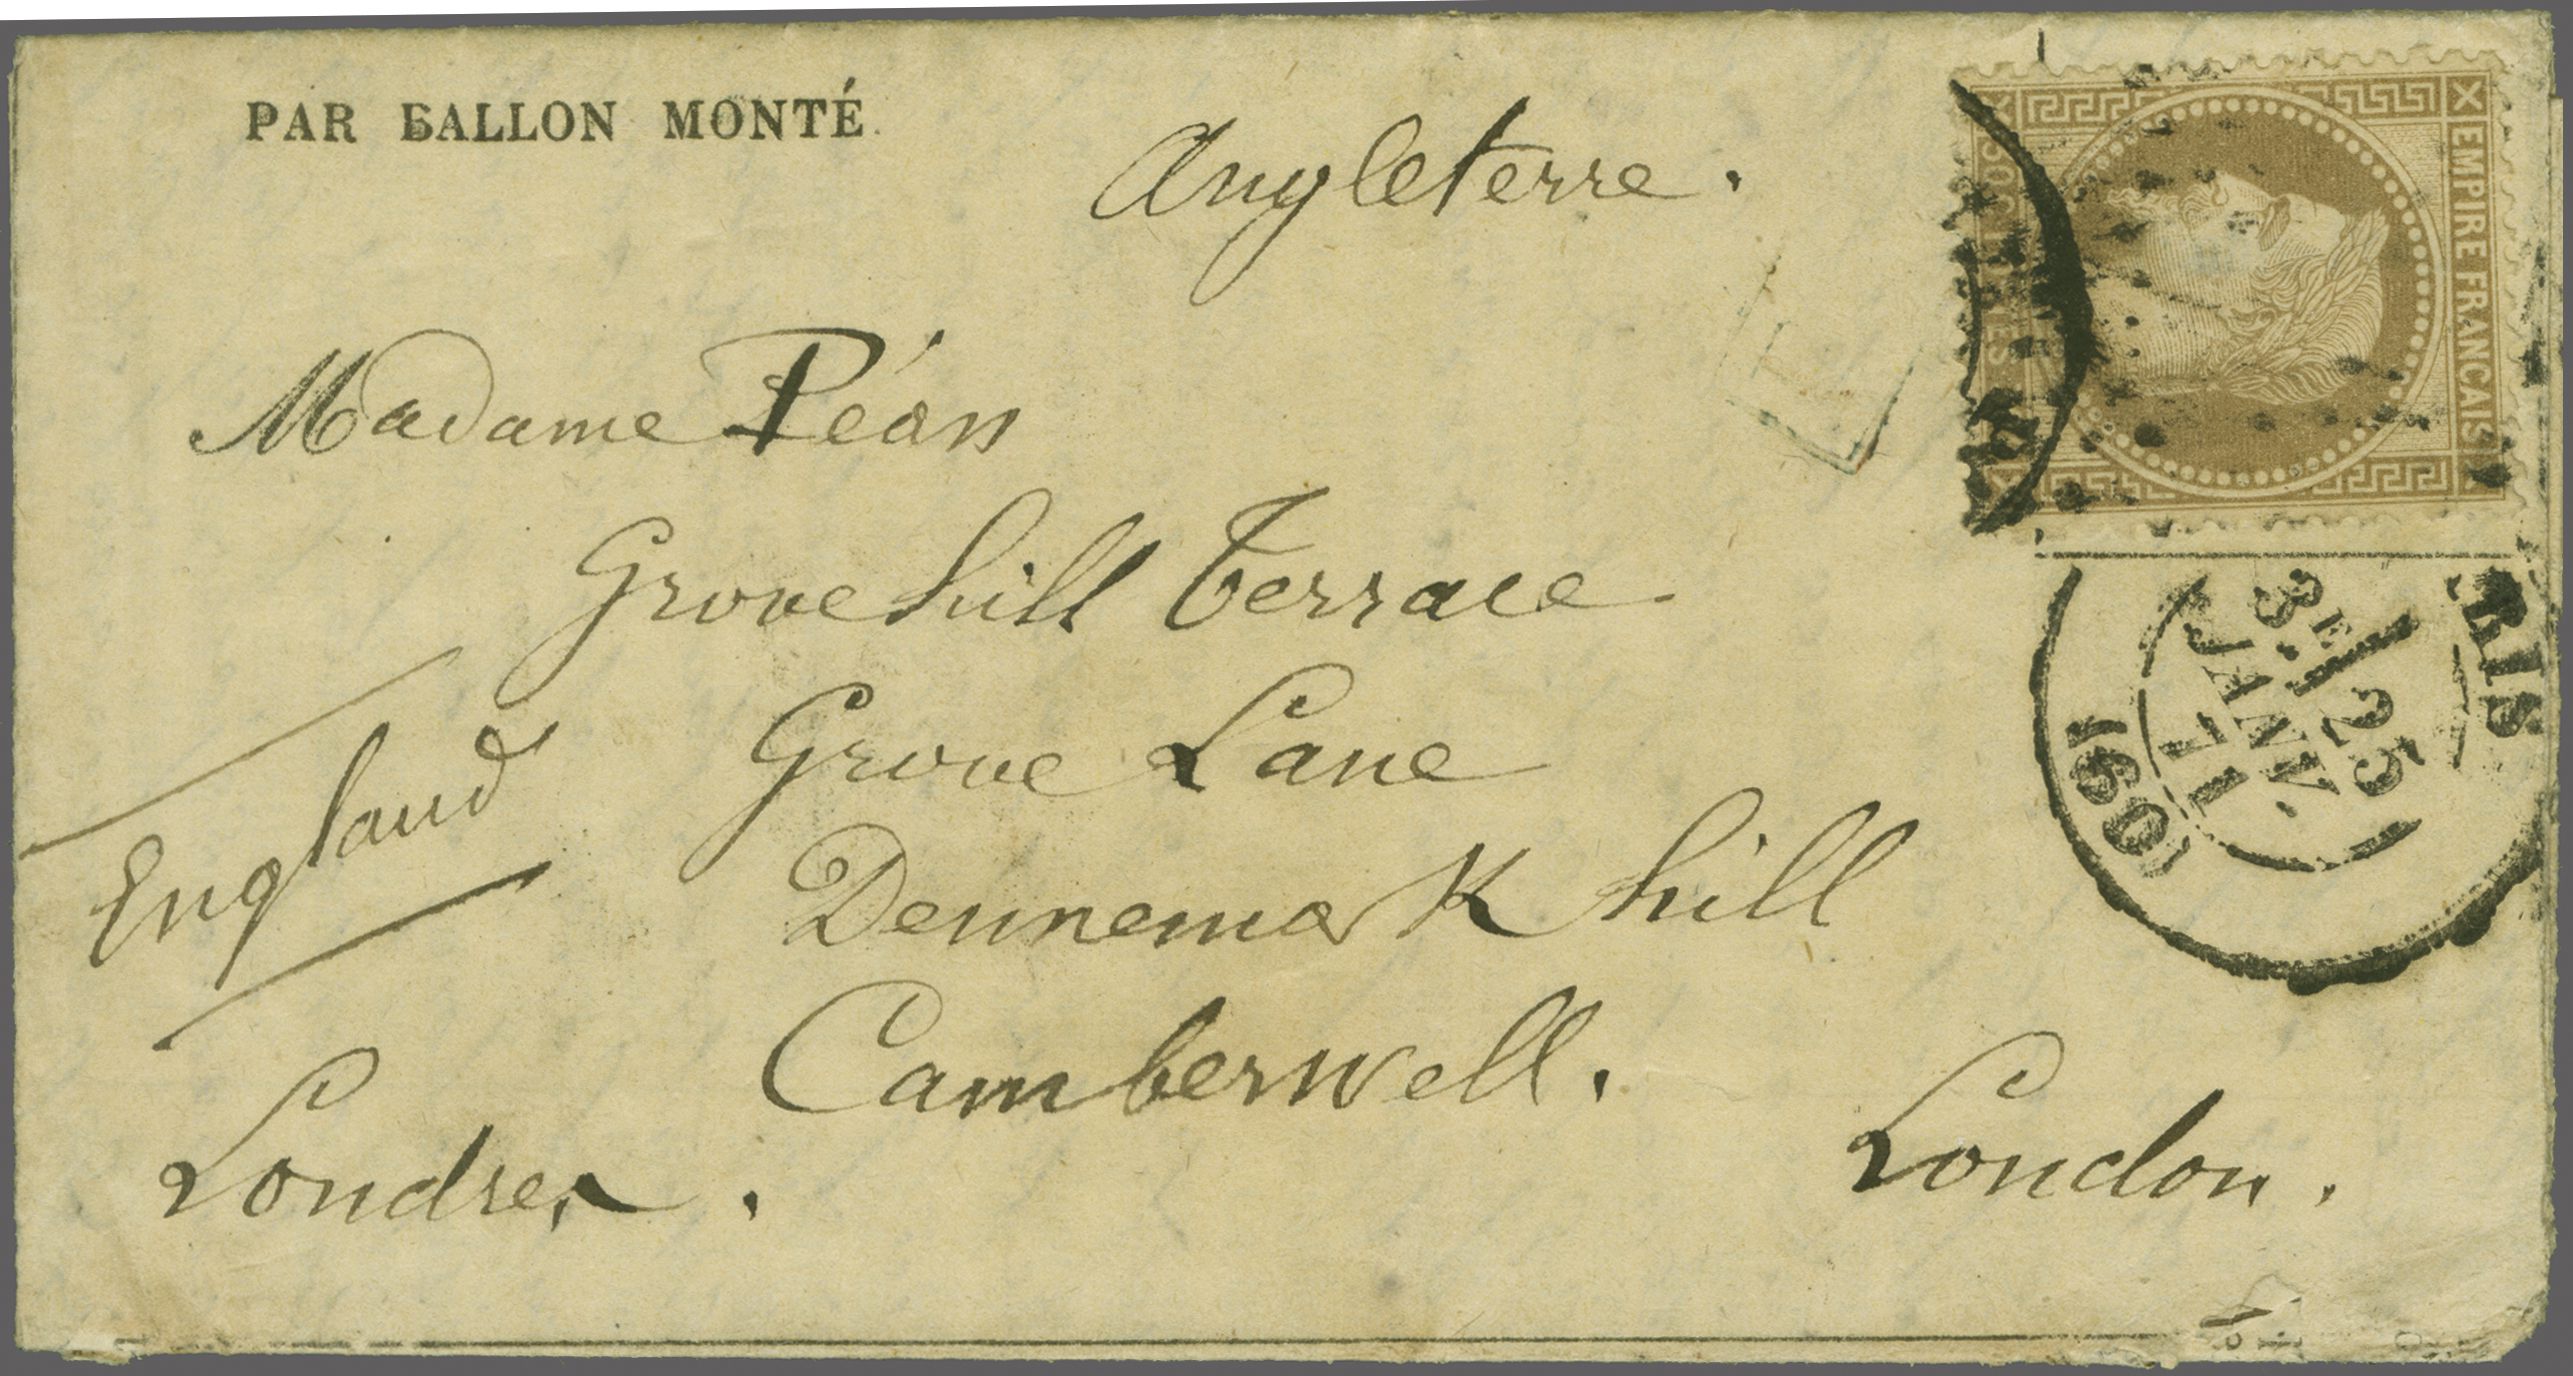 PAR BALLON MONTÉ.
Angleterre.
EMPIRE FRANÇAIS
30 CENTIMES
Madame Péan
Grove hill Terrace
Grove Lane
Dennemark hill
Camberwell.
England
Londres.
London.
RIS
3E
25
JANV.
71
(60)